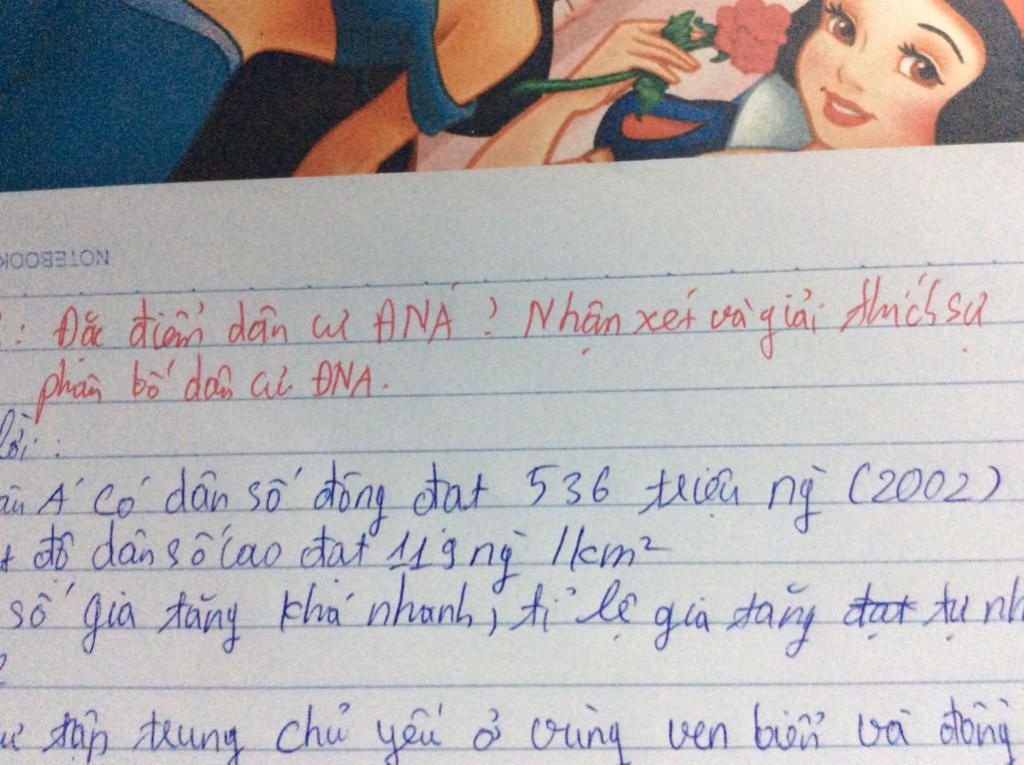 NOTEBOOK
: Đăc điểm dân cư ĐNÁ ? Nhận xét và giải thích sự
phân bố dân cư ĐNA.
lời :
Á có dân số đông đạt 536 triệu ng` (2002)
độ dân số cao đạt 119 ng` /1km²
số gia tăng khá nhanh, tỉ lệ gia tăng đạt tự nh
tập trung chủ yếu ở vùng ven biển và đồng